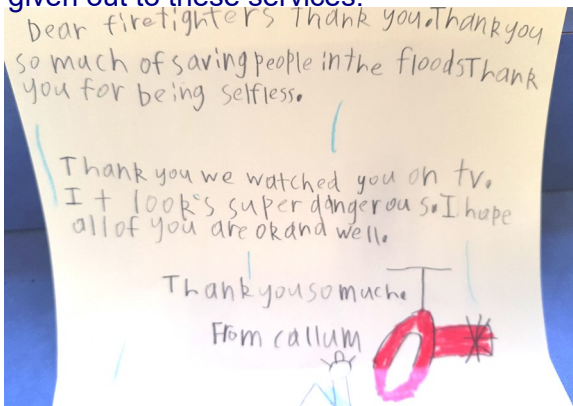 given out to these services.
Dear firefighters thank you. Thank you
so much of saving people in the floods Thank
you for being selfless.
Thank you we watched you on tv.
It look's super dangerous. I hope
all of you are ok and well.
Thank you so much.
From callum